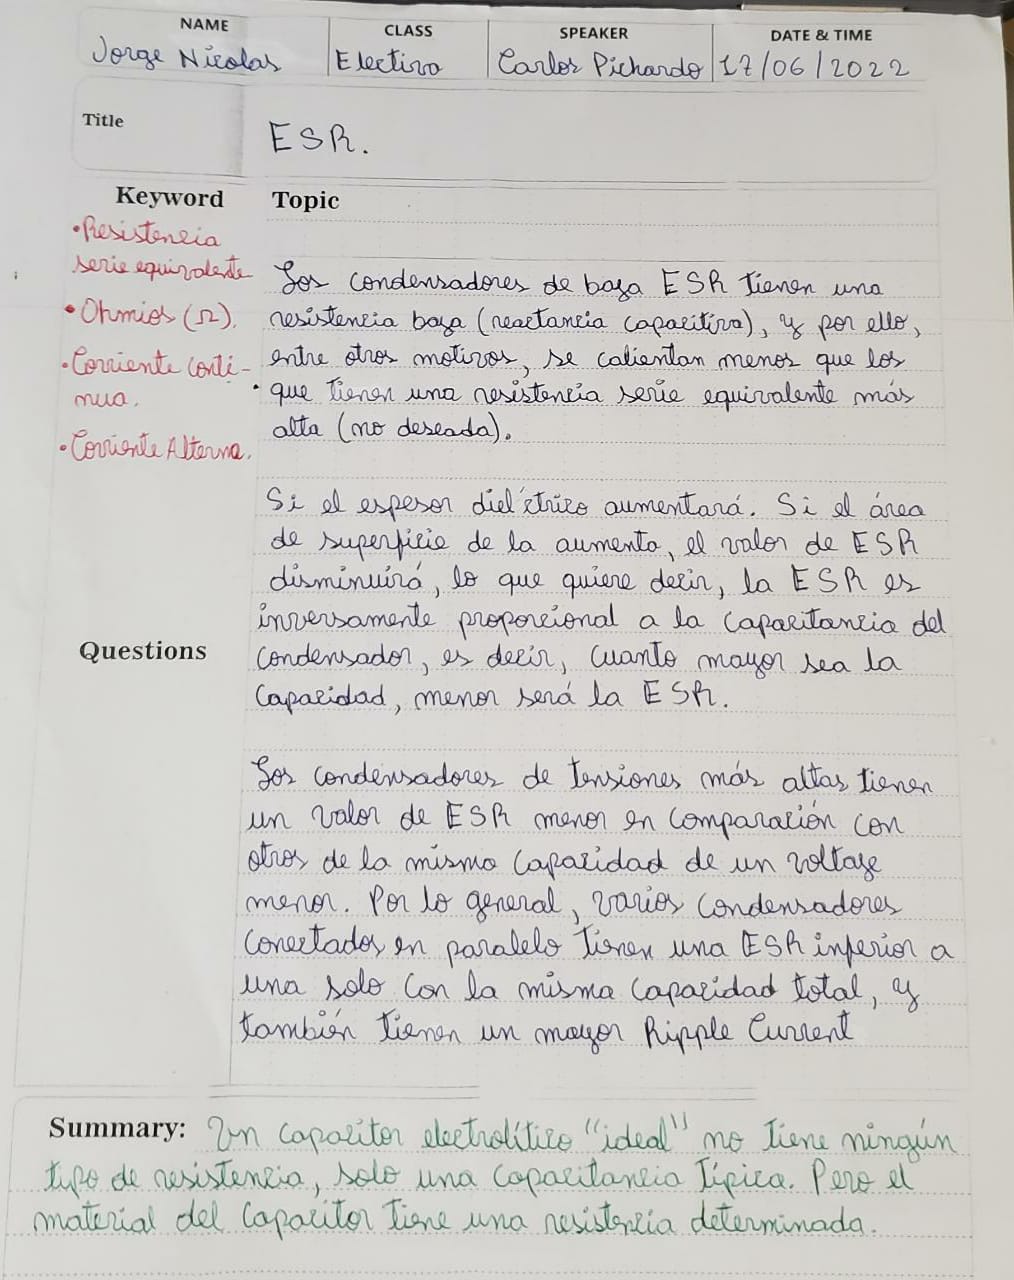 NAME CLASS SPEAKER DATE & TIME
Jorge Nicolas Electiva Carlos Pichardo 17/06/2022
Title ESR.
Keyword
• Resistencia
serie equivalente
• Ohmios (Ω).
• Corriente conti-
nua.
• Corriente Alterna.
Topic
Los condensadores de baja ESR tienen una
resistencia baja (reactancia capacitiva), y por ello,
entre otros motivos, se calientan menos que los
que tienen una resistencia serie equivalente más
alta (no deseada).
Si el espesor dieléctrico aumentará. Si el área
de superficie de la aumenta, el valor de ESR
disminuirá, lo que quiere decir, la ESR es
inversamente proporcional a la capacitancia del
condensador, es decir, cuanto mayor sea la
capacidad, menor será la ESR.
Questions
Los condensadores de tensiones más altas tienen
un valor de ESR menor en comparación con
otros de la misma capacidad de un voltaje
menor. Por lo general, varios condensadores
conectados en paralelo tienen una ESR inferior a
una solo con la misma capacidad total, y
también tienen un mayor Ripple Current
Summary: Un capacitor electrolítico "ideal" no tiene ningún
tipo de resistencia, solo una capacitancia típica. Pero el
material del capacitor tiene una resistencia determinada.